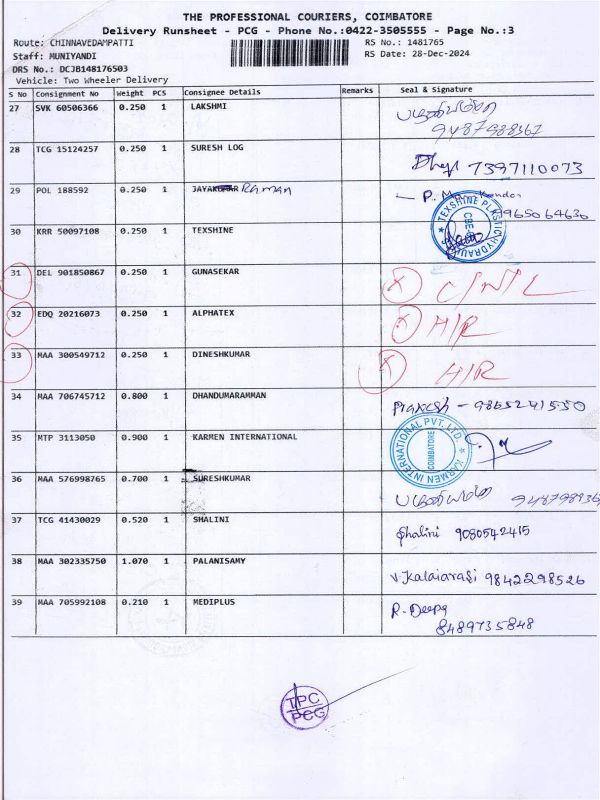 THE PROFESSIONAL COURIERS, COIMBATORE
Delivery Runsheet - PCG - Phone No.:0422-3505555 - Page No.:3
Route: CHINNAVEDAMPATTI RS No.: 1481765
Staff: MUNIYANDI RS Date: 28-Dec-2024
DRS No.: DCJB148176503
Vehicle: Two Wheeler Delivery
S No Consignment No Weight PCS Consignee Details Remarks Seal & Signature
27 SVK 60506366 0.250 1 LAKSHMI
28 TCG 15124257 0.250 1 SURESH LOG 7397110073
29 POL 188592 0.250 1 Raman
9965064636
30 KRR 50097108 0.250 1 TEXSHINE
31 DEL 901850867 0.250 1 GUNASEKAR
32 EDQ 20216073 0.250 1 ALPHATEX H/R
33 MAA 300549712 0.250 1 DINESHKUMAR H/R
34 MAA 706745712 0.800 1 DHANDUMARAMMAN 9865241550
35 MTP 3113050 0.900 1 KARMEN INTERNATIONAL
KARMEN INTERNATIONAL PVT. LTD.
COIMBATORE
36 MAA 576998765 0.700 1 SURESHKUMAR
37 TCG 41430029 0.520 1 SHALINI Shalini 9080542415
38 MAA 302335750 1.070 1 PALANISAMY V. Kalaiarasi 9842298526
39 MAA 705992108 0.210 1 MEDIPLUS R. Deepa
8489735848
TPC
PCG